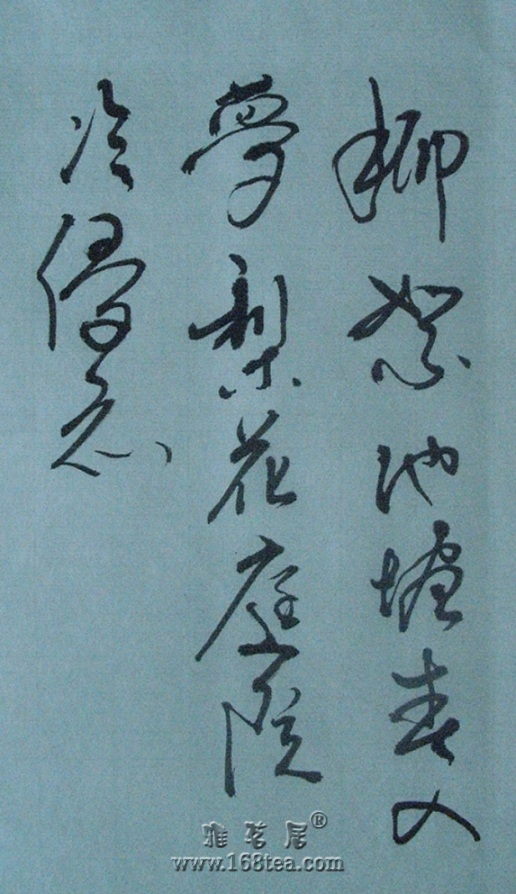 柳絮池塘春入
夢梨花庭院
冷侵衣
雅茗居®
www.168tea.com